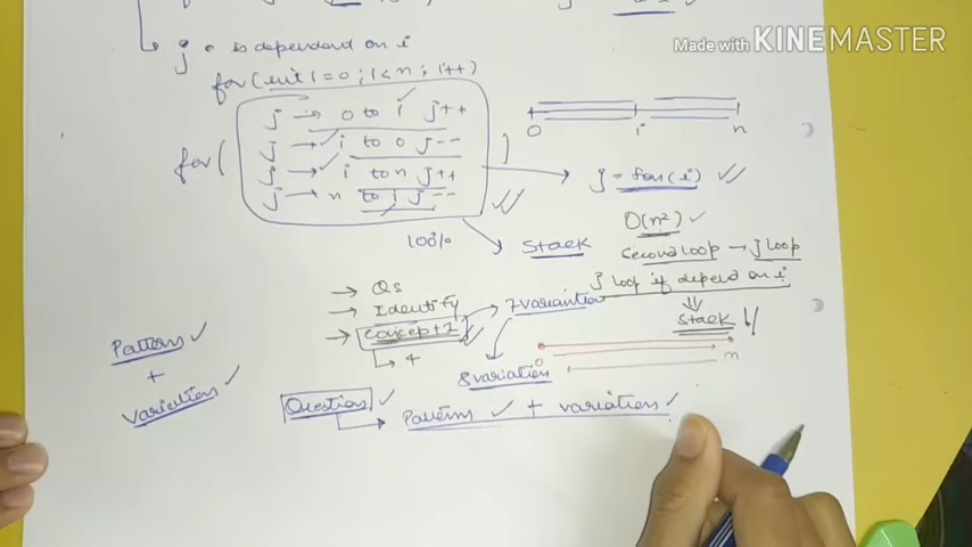 Made with KINEMASTER
j is dependend on i
for(int i=0; i<n; i++)
for(
j → 0 to i j++
j → i to 0 j--
j → i to n j++
j → n to i j--
0 i n
j = fon(i)
O(n²)
100%
Stack
Second loop → j loop
j loop if depend on i
Stack
→ Qs
→ Identify
→ Concept 1
→ 7 variantion
→ 4
8 variation
0 n
Pattern
+
Variation
Question
Patterns + variation